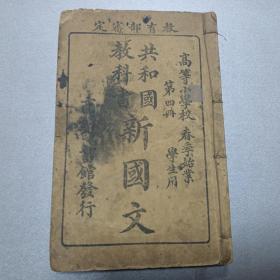 教育部審定
高等小學校 春季始業
第四冊 學生用
共和國
教科書
新國文
書館發行